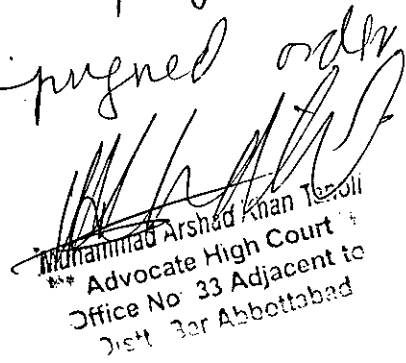 -pugned order
Muhammad Arshad Khan Tanoli
*** Advocate High Court *
Office No 33 Adjacent to
Distt Bar Abbottabad